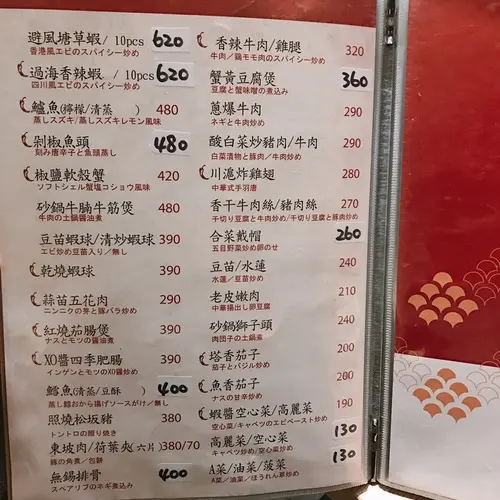 避風塘草蝦/10pcs 620
香港風エビのスパイシー炒め
過海香辣蝦/10pcs 620
四川風エビのスパイシー炒め
鱸魚(檸檬/清蒸 ) 480
蒸しスズキ/蒸しスズキレモン風味
剁椒魚頭 480
刻み唐辛子と魚頭蒸し
椒鹽軟殼蟹 420
ソフトシェル蟹塩コショウ風味
砂鍋牛腩牛筋煲 480
牛肉の土鍋醤油煮
豆苗蝦球/清炒蝦球 390
エビ炒め豆苗入り/無し
乾燒蝦球 390
蒜苗五花肉 290
ニンニクの芽と豚バラ炒め
紅燒茄腸煲 390
ナスとモツの醤油煮
XO醬四季肥腸 390
インゲンとモツのXO醤炒め
鱈魚(清蒸/豆酥 ) 400
蒸し鱈おから揚げソースがけ/無し
照燒松坂豬 380
トントロの照り焼き
東坡肉/荷葉夾(六片) 380/70
豚の角煮/包餅
無錫排骨 400
スペアリブのネギ煮込み
香辣牛肉/雞腿 320
牛肉/鶏モモ肉のスパイシー炒め
蟹黃豆腐煲 360
豆腐と蟹味噌の煮込み
蔥爆牛肉 290
ネギと牛肉炒め
酸白菜炒豬肉/牛肉 290
白菜漬物と豚肉/牛肉炒め
川滬炸雞翅 280
中華式手羽唐
香干牛肉絲/豬肉絲 270
千切り豆腐と牛肉炒め/千切り豆腐と豚肉炒め
合菜戴帽 260
五目野菜炒め卵のせ
豆苗/水蓮 240
水蓮/豆苗炒め
老皮嫩肉 210
中華揚出し卵豆腐
砂鍋獅子頭 240
肉団子の土鍋煮
塔香茄子 200
茄子とバジル炒め
魚香茄子 200
ナスの甘辛炒め
蝦醬空心菜/高麗菜 190
空心菜/キャベツのエビペースト炒め
高麗菜/空心菜 130
キャベツ炒め/空心菜炒め
A菜/油菜/菠菜 130
A菜/油菜/ほうれん草炒め